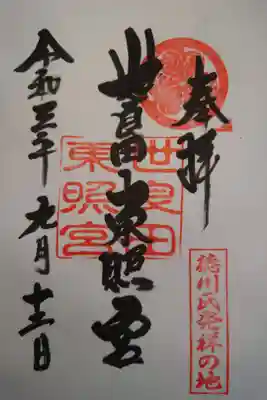 奉拝
世良田東照宮
世良田
東照宮
徳川氏発祥の地
令和三年九月十二日